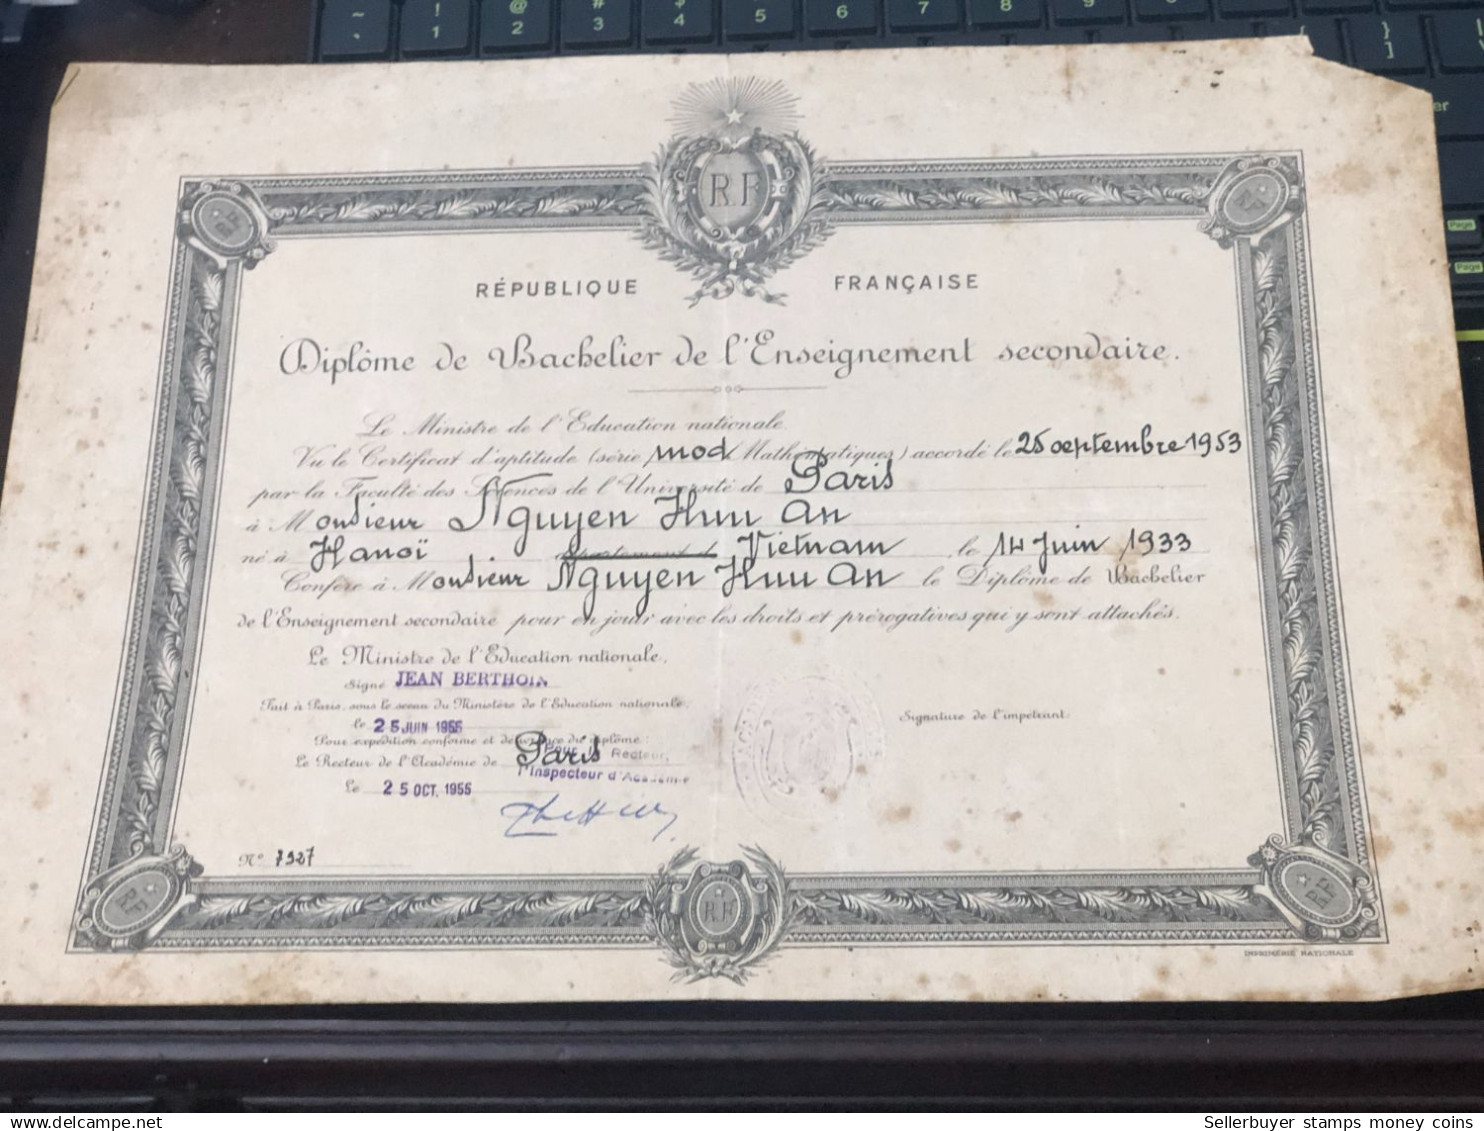 R.F
RÉPUBLIQUE FRANÇAISE
Diplôme de Bachelier de l'Enseignement secondaire.
Le Ministre de l'Education nationale
Vu le Certificat d'aptitude (série mod Mathématiques) accordé le 25 septembre 1953
par la Faculté des Sciences de l'Université de Paris
à Monsieur Nguyen Huu An
né à Hanoï département de Vietnam le 14 Juin 1933
Confère à Monsieur Nguyen Huu An le Diplôme de Bachelier
de l'Enseignement secondaire pour en jouir avec les droits et prérogatives qui y sont attachés.
Le Ministre de l'Education nationale,
Signé JEAN BERTHOIN
Fait à Paris, sous le sceau du Ministère de l'Education nationale,
le 25 JUIN 1955
Pour expédition conforme et délivrance du diplôme:
Le Recteur de l'Académie de Paris
Pour le Recteur,
l'Inspecteur d'Académie
Le 25 OCT. 1955
Signature de l'impétrant
N° 7927
R.F
IMPRIMERIE NATIONALE
Sellerbuyer stamps money coins